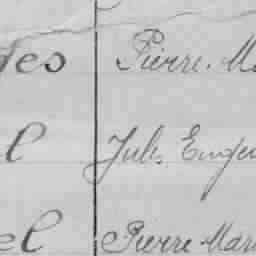 des Pierre. Ma
l Jules Eugen
el Pierre Mari